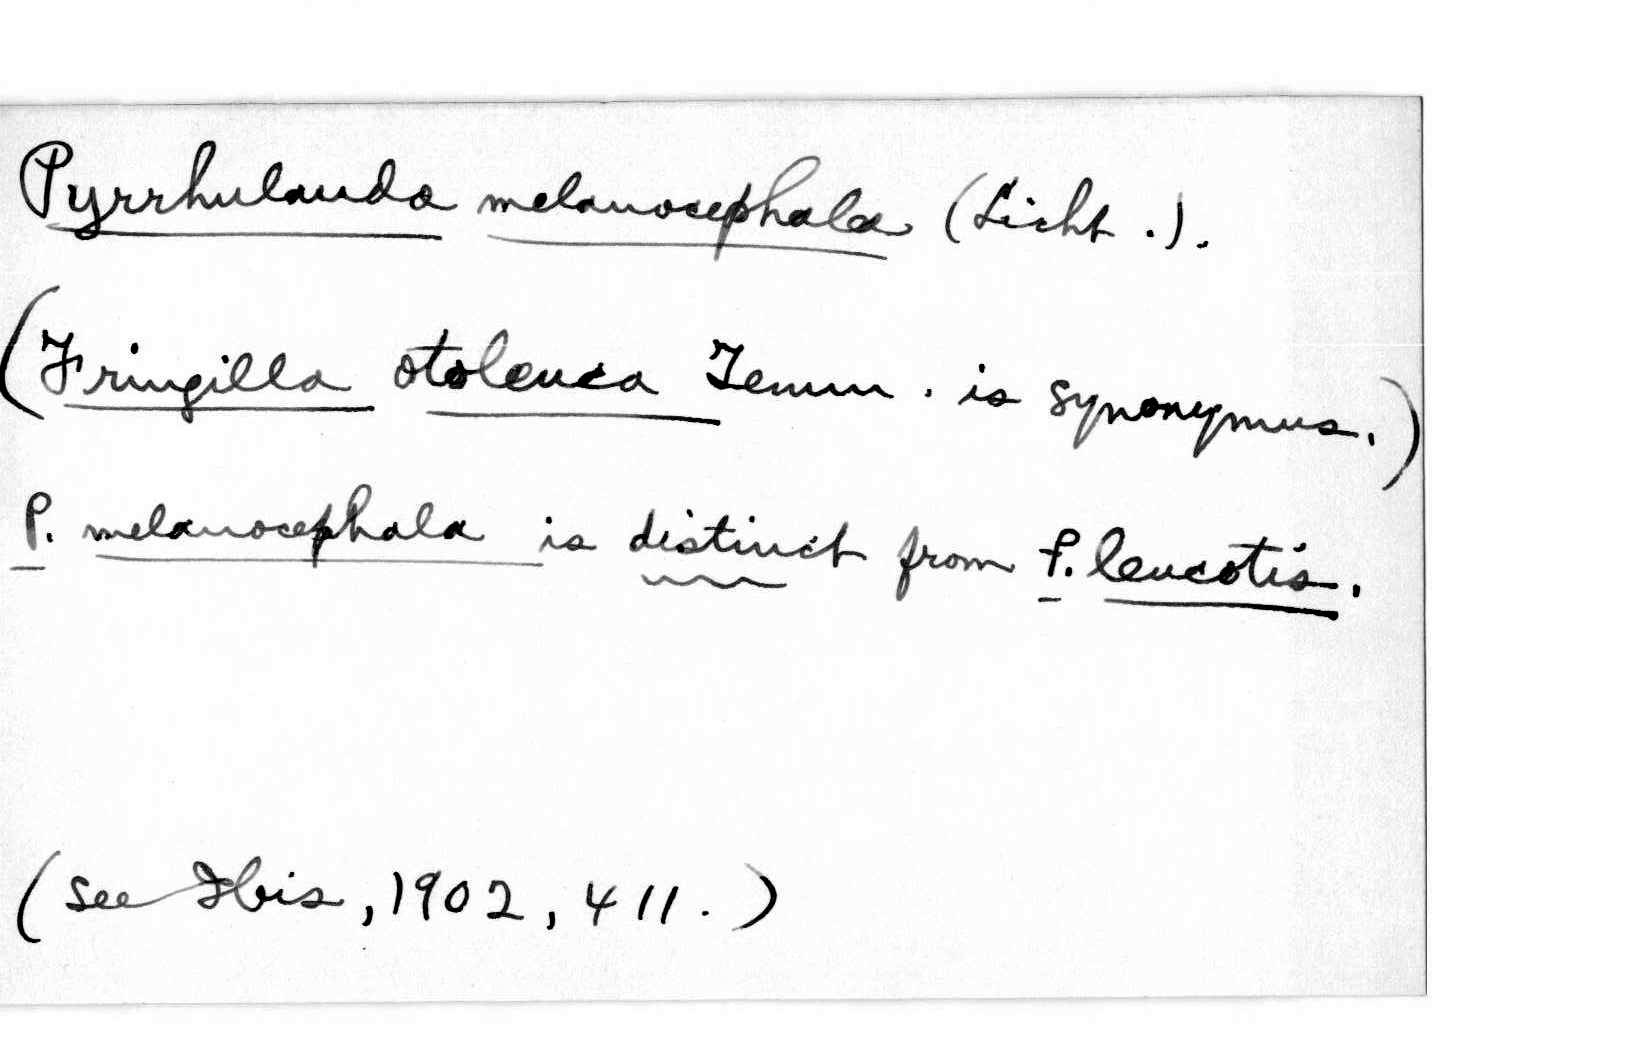 Pyrrhulauda melanocephala (Licht.).
(Fringilla otoleuca Temm. is synonymus.)
P. melanocephala is distinct from P. leucotis.
(see Ibis, 1902, 411.)